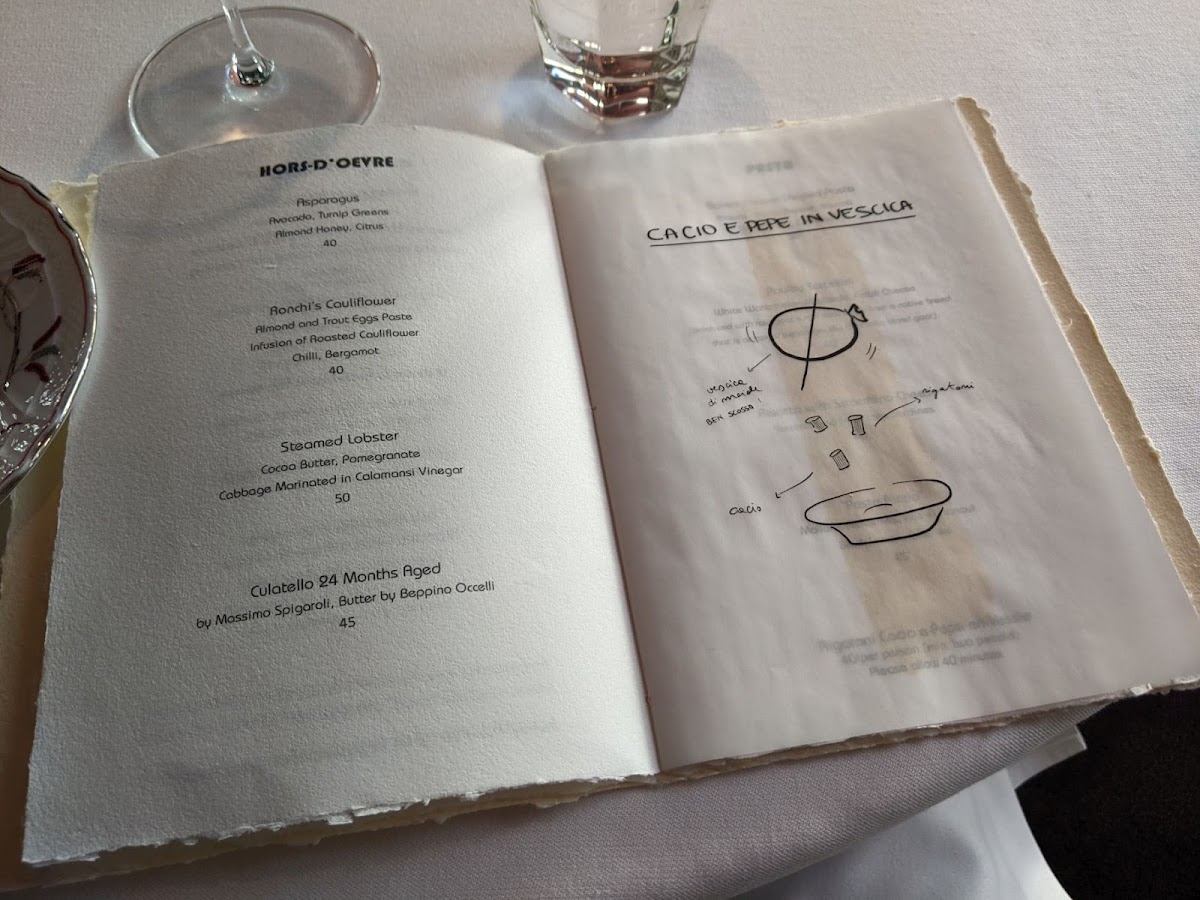 HORS-D'OEVRE
Asparagus
Avocado, Turnip Greens
Almond Honey, Citrus
40
Ronchi's Cauliflower
Almond and Trout Eggs Paste
Infusion of Roasted Cauliflower
Chilli, Bergamot
40
Steamed Lobster
Cocoa Butter, Pomegranate
Cabbage Marinated in Calamansi Vinegar
50
Culatello 24 Months Aged
by Massimo Spigaroli, Butter by Beppino Occelli
45
PASTA
CACIO E PEPE IN VESCICA
vescica
di maiale
BEN SCOSSO!
rigatoni
cacio
45
Rigatoni Cacio e Pepe en Vessie
40 per person (min. two persons)
Please allow 40 minutes